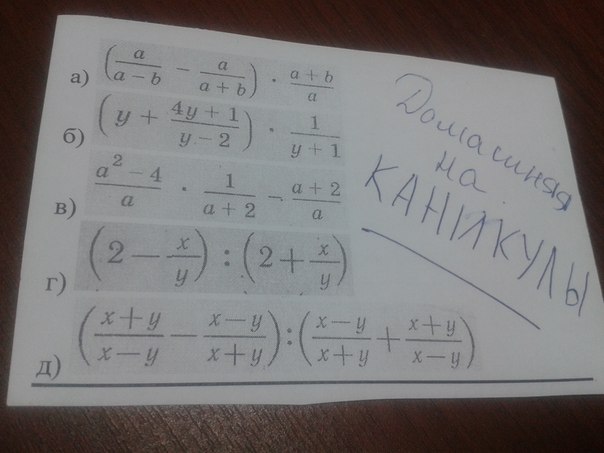 а) (a/(a − b) − a/(a + b)) · (a + b)/a
б) (y + (4y + 1)/(y − 2)) · 1/(y + 1)
в) (a² − 4)/a · 1/(a + 2) − (a + 2)/a
г) (2 − x/y) : (2 + x/y)
д) ((x + y)/(x − y) − (x − y)/(x + y)) : ((x − y)/(x + y) + (x + y)/(x − y))
Домашняя
на
КАНИКУЛЫ